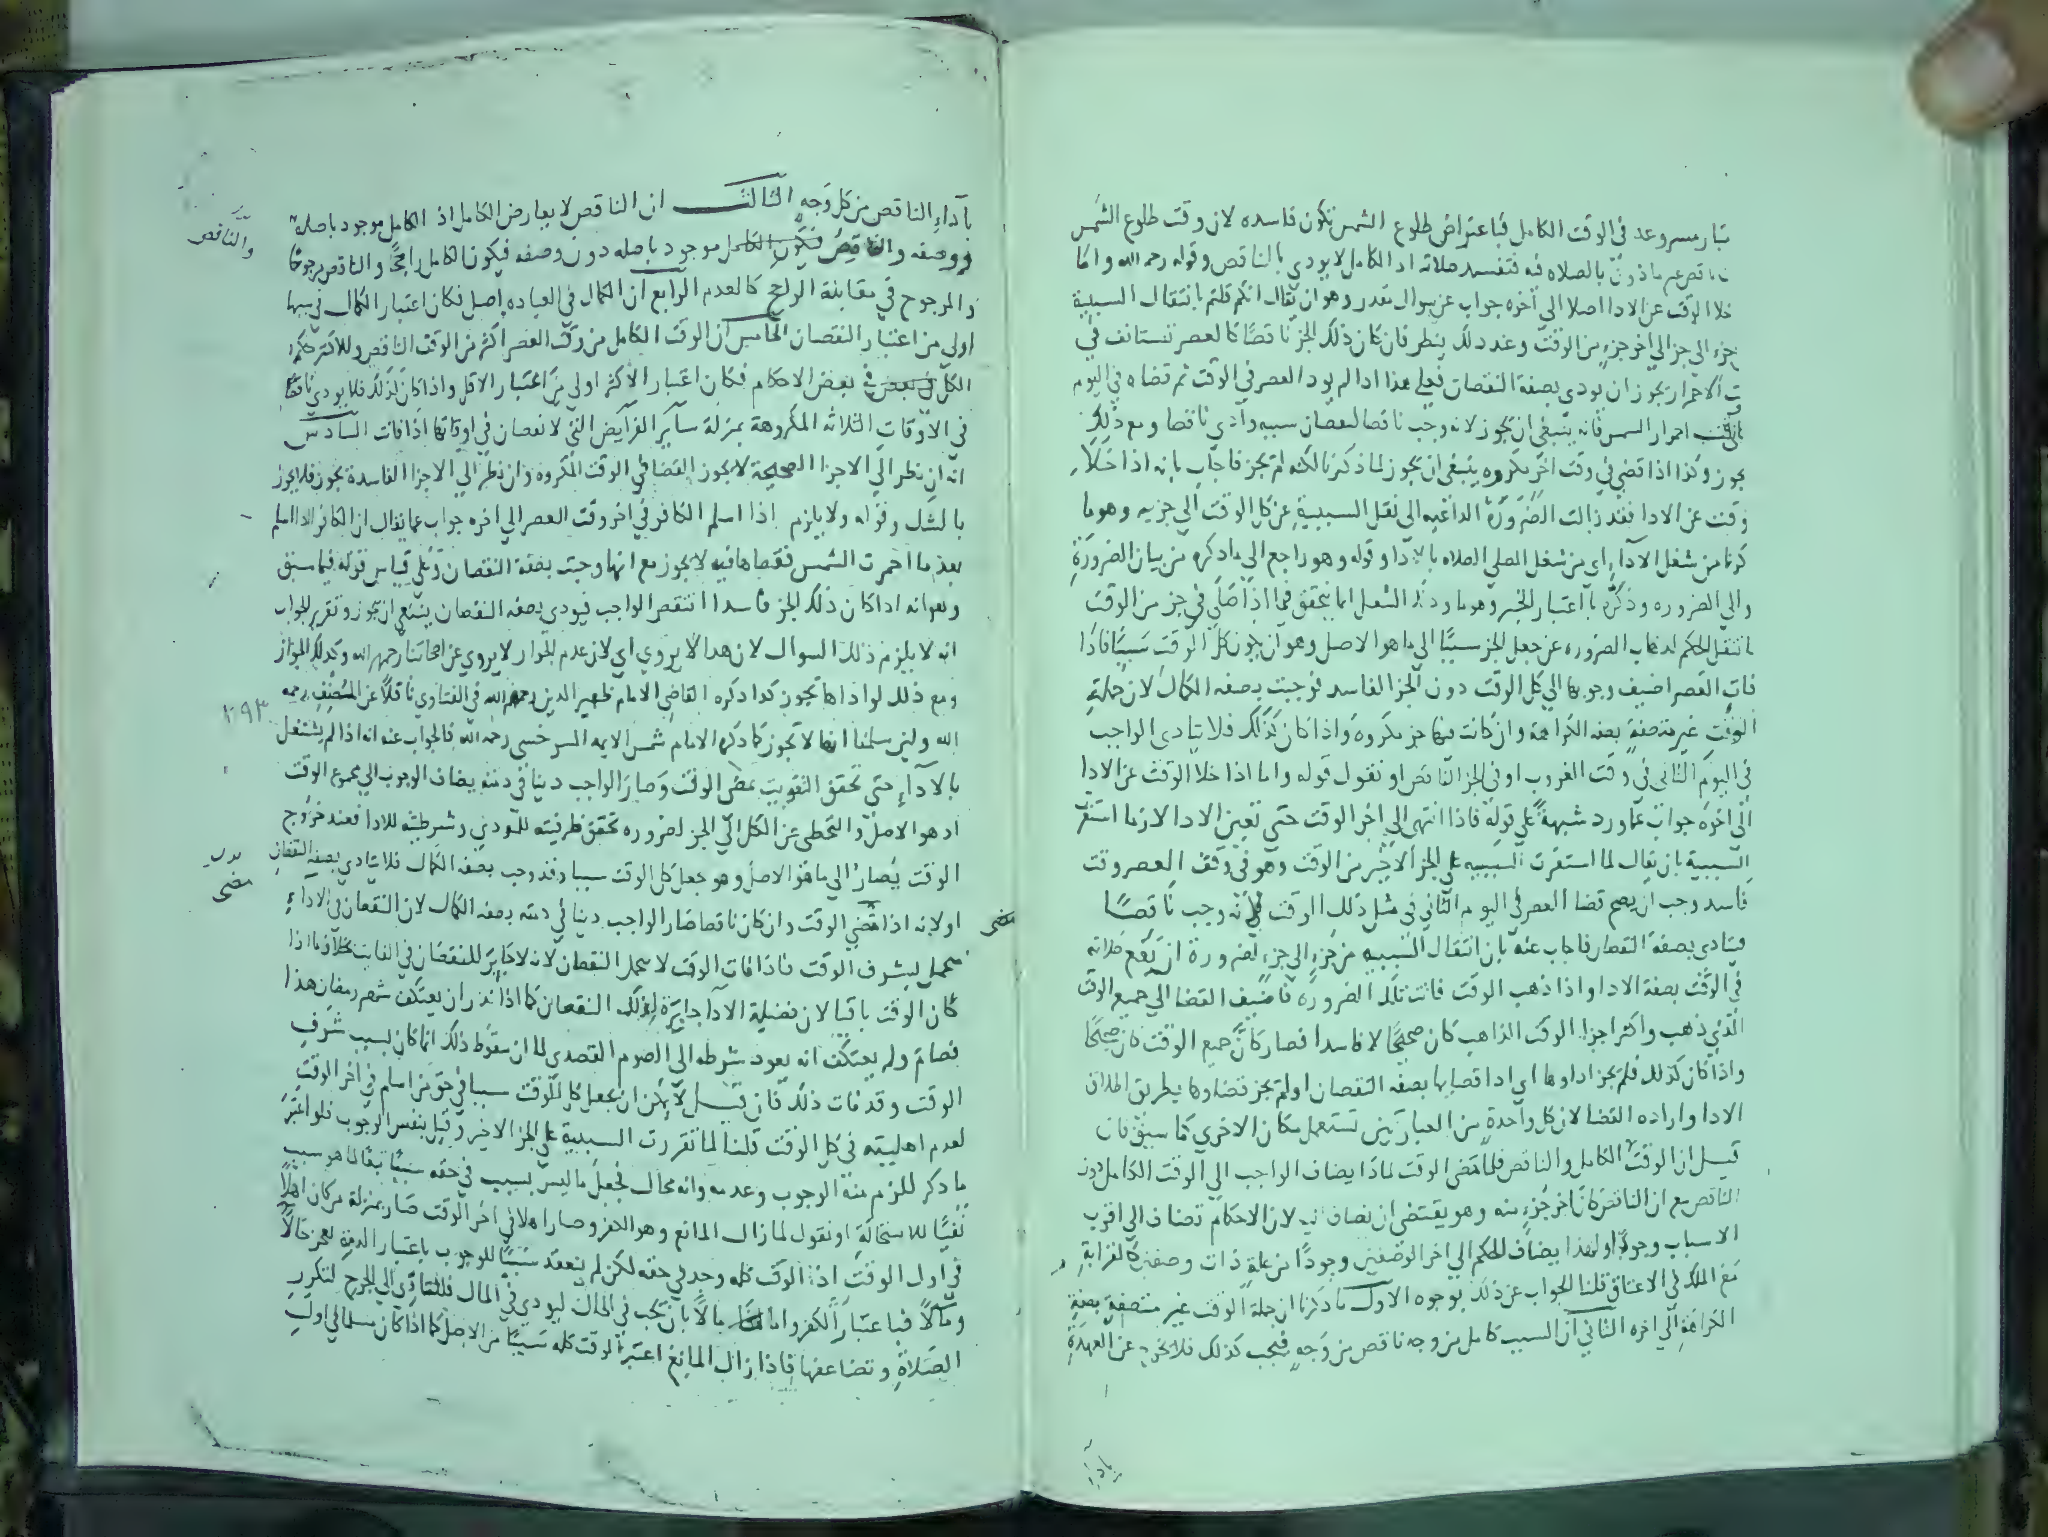 فباعتراض طلوع الشمس تكون فاسده لان وقت طلوع الشمس
ناقص غير ماذون بالصلاه فيه فتفسد صلاته اذ الكامل لا يودي بالناقص وقوله رحمه الله واما
خلا الوقت عن الادا اصلا الي آخره جواب عن سوال مقدر وهو ان يقال انكم قلتم بانتقال السببية
جزء الي جزء الي آخر جزء من الوقت وعند ذلك ينظر فان كان ذلك الجز ناقصًا كالعصر تستانف في
ت الاحمرار يجوز ان يودي بصفة النقصان فعلي هذا اذا لم يود العصر في الوقت ثم قضاه في اليوم
احمرار الشمس فانه ينبغي ان يجوز لانه وجب ناقصا لنقصان سببه وادي ناقصا ومع ذلك
يجوز وكذا اذا قضي في وقت آخر مكروه ينبغي ان يجوز لما ذكرنا لكنه لم يجز فاجاب بانه اذا خلا
وقت عن الادا فقد زالت الضرورة الداعيه الي نقل السببية عن كل الوقت الي جزيه وهو ما
كرنا من شغل الادآء اي من شغل المصلي الصلاه بالادآ وقوله وهو راجع الي ما ذكره من بيان الضرورة
والي الضروره وذكره باعتبار الخبر وهو ما وذلك الشغل انما يتحقق فيما اذا صلي في جز من الوقت
فانتقل الحكم لذهاب الضروره عن جعل الجز سببًا الي ما هو الاصل وهو ان يكون كل الوقت سببًا فاذا
فات العصر اضيف وجوبها الي كل الوقت دون الجز الفاسد فوجبت بصفه الكمال لان جملة
الوقت غير متصفة بصفه الكراهة وان كانت فيها جز مكروه واذا كان كذلك فلا يتادي الواجب
في اليوم الثاني في وقت الغروب او في الجز الناقص او نقول قوله واما اذا خلا الوقت عن الادا
الي آخره جواب عما ورد شبهة علي قوله فاذا انتهي الي آخر الوقت حتي تعين الادا لازما استقر
السببية بان يقال لما استقرت السببيه علي الجز الاخير من الوقت وهو في وقت العصر وقت
فاسد وجب ان يصح قضا العصر في اليوم الثاني في مثل ذلك الوقت لانه وجب ناقصًا
فيتادي بصفة النقصان فاجاب عنه بان انتقال السببيه من جزء الي جزء لضرورة ان يقع صلاته
في الوقت بصفة الادا واذا ذهب الوقت فاتت تلك الضروره فاضيف القضا الي جميع الوقت
الذي ذهب واكثر اجزا الوقت الذاهب كان صحيحًا لا فاسدا فصار كأن جميع الوقت كان صحيحًا
واذا كان كذلك فلم يجز اداوها اي ادا قضايها بصفه النقصان او لم يجز قضاوها بطريق اطلاق
الادا واراده القضا لان كل واحدة من العبارتين تستعمل مكان الاخري كما سبق فان
قيل ان الوقت الكامل والناقص فلما مضي الوقت لماذا يضاف الواجب الي الوقت الكامل دون
الناقص مع ان الناقص كان آخر جزء منه وهو يقتضي ان يضاف اليه لان الاحكام تضاف الي اقرب
الاسباب وجودًا ولهذا يضاف الحكم الي آخر الوصفين وجودًا من علة ذات وصفين كالقرابة
مع الملك في الاعتاق قلنا الجواب عن ذلك بوجوه الاول ما ذكرنا ان جملة الوقت غير متصفة بصفة
الكراهة الي آخره الثاني ان السبب كامل من وجه ناقص من وجه فيجب كذلك فلا يخرج عن العهدة
بادآ
بآداء الناقص من كل وجه الثالث ان الناقص لا يعارض الكامل اذ الكامل موجود باصله
ووصفه والناقص موجود باصله دون وصفه فيكون الكامل راجحًا والناقص مرجوحًا
والناقص
والمرجوح في مقابلة الراجح كالعدم الرابع ان الكمال في العباده اصل فكان اعتبار الكمال في سببها
اولي من اعتبار النقصان الخامس ان الوقت الكامل من وقت العصر اكثر من الوقت الناقص وللاكثر حكم
الكل في بعض الاحكام فكان اعتبار الاكثر اولي من اعتبار الاقل واذا كان كذلك فلا يودي ناقصًا
في الاوقات الثلاثه المكروهة بمنزلة ساير الفرايض التي لا نقصان في اوقاتها اذا فاتت السادس
انه ان نظر الي الاجزا الصحيحة لا يجوز القضا في الوقت المكروه وان نظر الي الاجزا الفاسدة يجوز فلا يجوز
بالشك وقوله ولا يلزم اذا اسلم الكافر في آخر وقت العصر الي آخره جواب عما يقال ان الكافر اذا اسلم
بعد ما احمرت الشمس فقضاها فيه لا يجوز مع انها وجبت بصفة النقصان وعلي قياس قوله فيما سبق
وهو انه اذا كان ذلك الجز فاسدا انتقص الواجب فيودي بصفه النقصان ينبغي ان يجوز وتقرير الجواب
انه لا يلزم ذلك السوال لان هذا لا يروي اي لان عدم الجواز لا يروي عن اصحابنا رحمهم الله وكذلك الجواز
ومع ذلك لو اداها يجوز كذا ذكره القاضي الامام ظهير الدين رحمه الله في الفتاوي ناقلًا عن المصنف رحمه
٢٩٣
الله ولئن سلمنا انها لا تجوز كما ذكره الامام شمس الايمه السرخسي رحمه الله فالجواب عنه انه اذا لم يشتغل
بالادآء حتي تحقق التفويت بمضي الوقت وصار الواجب دينا في ذمته يضاف الوجوب الي مجموع الوقت
اذ هو الاصل والتخطي عن الكل الي الجز لضروره تحقق ظرفيته للمودي وشرطيته للادا فعند خروج
الوقت يصار الي ما هو الاصل وهو جعل كل الوقت سببا وقد وجب بصفه الكمال فلا يتادي بصفة النقصان
او لانه اذا مضي الوقت وان كان ناقصا صار الواجب دينا في ذمته بصفه الكمال لان النقصان في الادآء
مضي
يتحمل لشرف الوقت فاذا فات الوقت لا يتحمل النقصان لانه لا جابر للنقصان في الفايت بخلاف ما اذا
كان الوقت باقيا لان فضيلة الادآ جابرة لذلك النقصان كما اذا نذر ان يعتكف شهر رمضان هذا
فصام ولم يعتكف انه يعود شرطه الي الصوم القصدي لما ان سقوط ذلك انما كان بسبب شرف
الوقت وقد فات ذلك فان قيل لا يمكن ان يجعل كل الوقت سببا في حق من اسلم في آخر الوقت
لعدم اهليته في كل الوقت قلنا لما تقررت السببية علي الجز الاخير وقيل بنفس الوجوب فلو اعتبر
ما ذكر للزم منه الوجوب وعدمه وانه محال فجعل ما ليس بسبب في حقه سببًا تبعًا لما هو سبب
نفيًا للاستحالة او نقول لما زال المانع وهو الكفر وصار اهلا في آخر الوقت صار بمنزلة من كان اهلًا
في اول الوقت اذ الوقت كله وجد في حقه لكن لم ينعقد سببًا للوجوب باعتبار المانع حالًا
ومآلًا فباعتبار الكفر واما مالًا بان تجب في الحال ليودي في المال فللتادي الي الحرج لتكرر
الصلاة وتضاعفها فاذا زال المانع اعتبر الوقت كله سببًا من الاصل كما اذا كان مسلما في اول